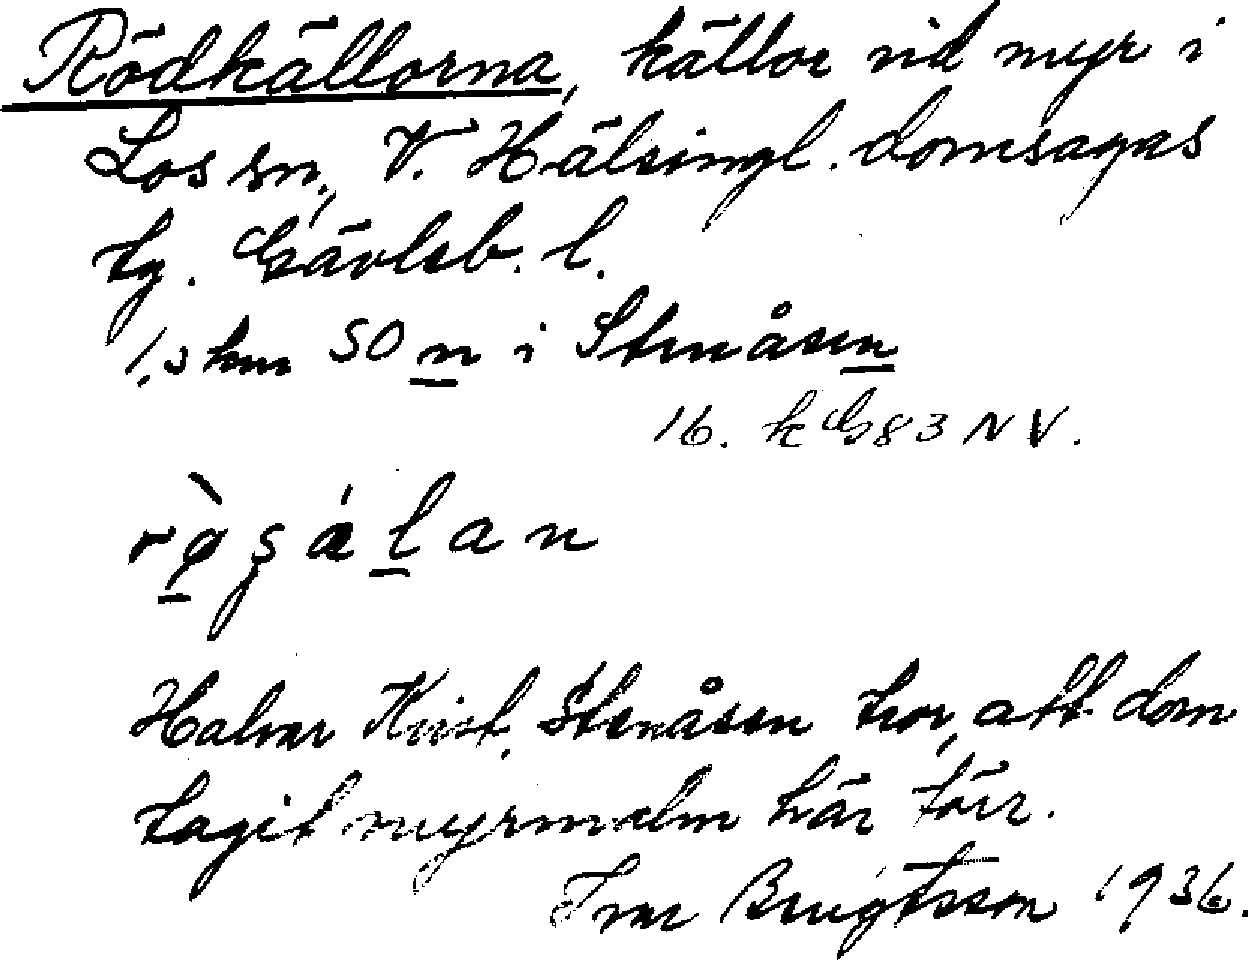 Rödkällorna, källor vid myr i
Los sn, V. Hälsingl. domsagas
tg. Gävleb. l.
1,3 km SO n i Stenåsen
16. k G83 NV.
Halvar Kvist, Stenåsen tror, att dom
tagit myrmalm här förr.
Ivar Bengtsson 1936.